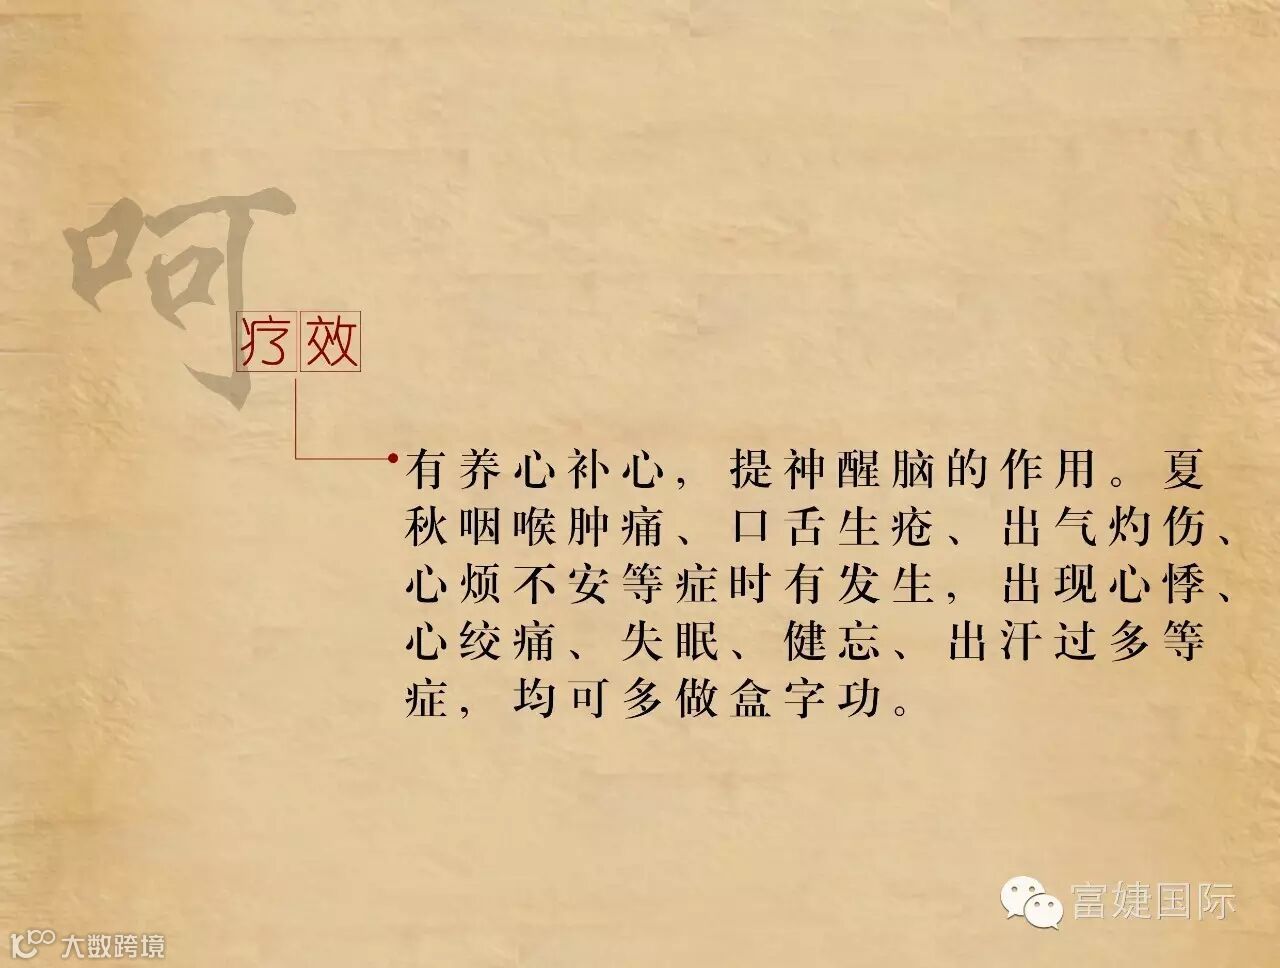 呵
疗效
有养心补心，提神醒脑的作用。夏
秋咽喉肿痛、口舌生疮、出气灼伤、
心烦不安等症时有发生，出现心悸、
心绞痛、失眠、健忘、出汗过多等
症，均可多做盒字功。
富婕国际
大数跨境